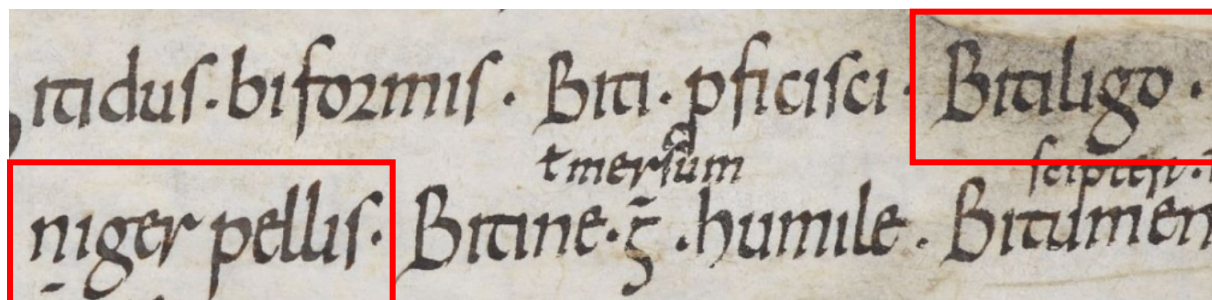 itidus. biformis. Biti. pficisci. Bitiligo.
niger pellis. Bitine. humile. Bitumen